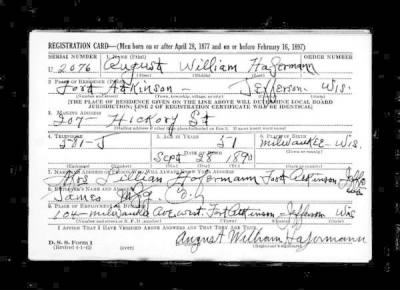 REGISTRATION CARD—(Men born on or after April 28, 1877 and on or before February 16, 1897)
SERIAL NUMBER 1. NAME (Print) ORDER NUMBER
U 2076 August William Hafermann
(First) (Middle) (Last)
2. PLACE OF RESIDENCE (Print)
Fort Atkinson - Jefferson - Wis.
(Number and street) (Town, township, village, or city) (County) (State)
[THE PLACE OF RESIDENCE GIVEN ON THE LINE ABOVE WILL DETERMINE LOCAL BOARD
JURISDICTION; LINE 2 OF REGISTRATION CERTIFICATE WILL BE IDENTICAL]
3. MAILING ADDRESS
207- Hickory St
4. TELEPHONE 5. AGE IN YEARS 6. PLACE OF BIRTH
581-J 51 Milwaukee - Wis.
DATE OF BIRTH
Sept 28 1890
(Mo.) (Day) (Yr.)
7. NAME AND ADDRESS OF PERSON WHO WILL ALWAYS KNOW YOUR ADDRESS
Mrs Lillian Hafermann Fort Atkinson Jeff
8. EMPLOYER'S NAME AND ADDRESS
James Mfg. Co.
9. PLACE OF EMPLOYMENT OR BUSINESS
104 - Milwaukee Ave. west. Fort Atkinson - Jefferson Wis
I AFFIRM THAT I HAVE VERIFIED ABOVE ANSWERS AND THAT THEY ARE TRUE.
August William Hafermann
D. S. S. Form 1
(Revised 4-1-42) (over)